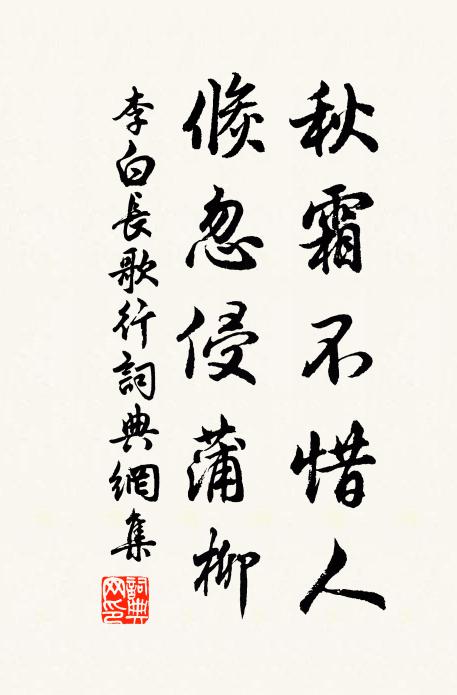 秋霜不惜人
倏忽侵蒲柳
李白長歌行詞典網集
詞典网印